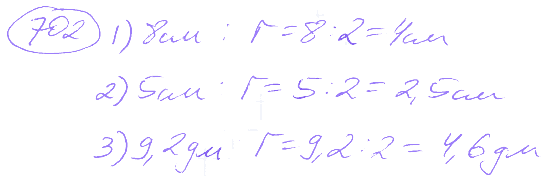 702 1) 8 см : r = 8 : 2 = 4 см
2) 5 см : r = 5 : 2 = 2,5 см
3) 9,2 дм r = 9,2 : 2 = 4,6 дм